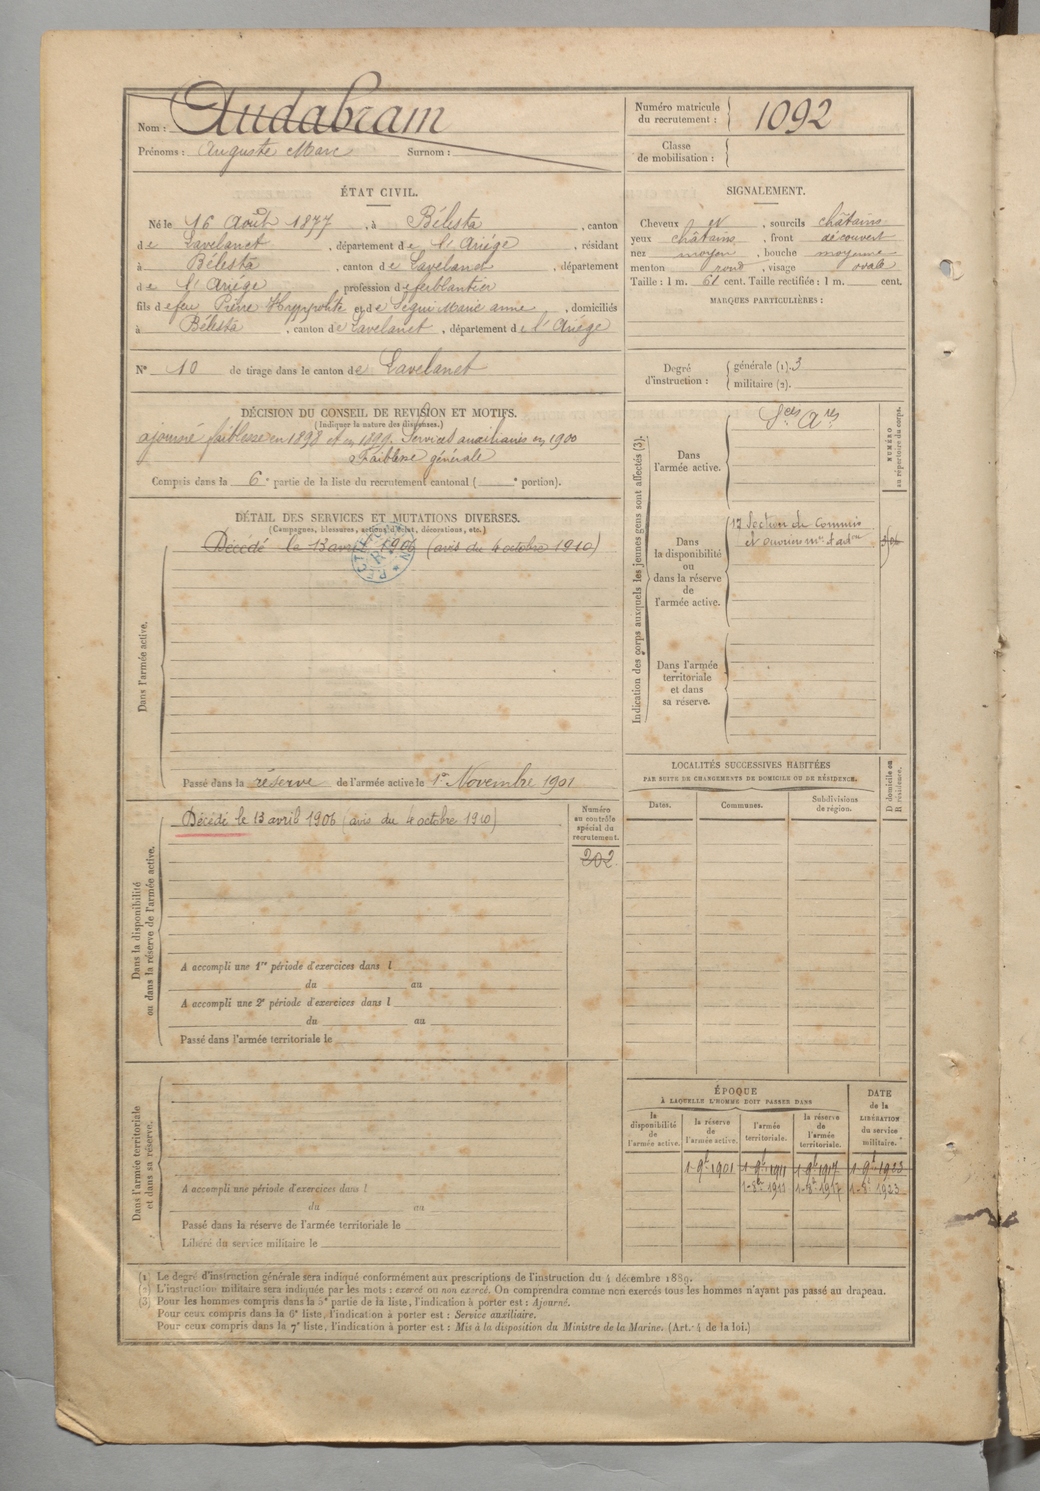 Nom : Audabram
Prénoms : Auguste Marc Surnom :
Numéro matricule du recrutement : 1092
Classe de mobilisation :
ÉTAT CIVIL.
Né le 16 Août 1877, à Bélesta, canton
de Lavelanet, département de l'Ariége, résidant
à Bélesta, canton de Lavelanet, département
de l'Ariége profession de ferblantier
fils de feu Pierre Hyppolite et deSégui Marie anne, domiciliés
à Bélesta, canton de Lavelanet, département de l'Ariége
N° 10 de tirage dans le canton de Lavelanet
SIGNALEMENT.
Cheveux et, sourcils châtains
yeux châtains, front découvert
nez moyen, bouche moyenne
menton rond, visage ovale
Taille : 1 m. 61 cent. Taille rectifiée : 1 m. cent.
MARQUES PARTICULIÈRES :
Degré d'instruction :
générale (1). 3
militaire (2).
DÉCISION DU CONSEIL DE REVISION ET MOTIFS.
(Indiquer la nature des dispenses.)
ajourné faiblesse en 1898 et en 1899. Services auxiliaires en 1900
Faiblesse générale
Compris dans la 6e partie de la liste du recrutement cantonal ( e portion).
DÉTAIL DES SERVICES ET MUTATIONS DIVERSES.
(Campagnes, blessures, actions d'éclat, décorations, etc.)
Dans l'armée active.
Décédé le 13 avril 1906 (avis du 4 octobre 1910)
Passé dans la réserve de l'armée active le 1er Novembre 1901
Dans la disponibilité
ou dans la réserve de l'armée active.
Décédé le 13 avril 1906 (avis du 4 octobre 1910)
Numéro
au contrôle
spécial du
recrutement.
202
A accompli une 1re période d'exercices dans l
du au
A accompli une 2e période d'exercices dans l
du au
Passé dans l'armée territoriale le
Dans l'armée territoriale
et dans sa réserve.
A accompli une période d'exercices dans l
du au
Passé dans la réserve de l'armée territoriale le
Libéré du service militaire le
Indication des corps auxquels les jeunes gens sont affectés (3).
NUMÉRO
au répertoire du corps.
Dans
l'armée active.
Sces Ares
Dans
la disponibilité
ou
dans la réserve
de
l'armée active.
17 Section de Commis
et ouvriers mres d'adon
Dans l'armée
territoriale
et dans
sa réserve.
LOCALITÉS SUCCESSIVES HABITÉES
PAR SUITE DE CHANGEMENTS DE DOMICILE OU DE RÉSIDENCE.
Dates.
Communes.
Subdivisions
de région.
D domicile ou
R résidence.
ÉPOQUE
À LAQUELLE L'HOMME DOIT PASSER DANS
la
disponibilité
de
l'armée active.
la réserve
de
l'armée active.
l'armée
territoriale.
la réserve
de
l'armée
territoriale.
DATE
de la
LIBÉRATION
du service
militaire.
1-9b 1901 1-9b 1911 1-9b 1917 1-9b 1923
1-8b 1911 1-8b 1917 1-8b 1923
(1) Le degré d'instruction générale sera indiqué conformément aux prescriptions de l'instruction du 4 décembre 1889.
(2) L'instruction militaire sera indiquée par les mots : exercé ou non exercé. On comprendra comme non exercés tous les hommes n'ayant pas passé au drapeau.
(3) Pour les hommes compris dans la 5e partie de la liste, l'indication à porter est : Ajourné.
Pour ceux compris dans la 6e liste, l'indication à porter est : Service auxiliaire.
Pour ceux compris dans la 7e liste, l'indication à porter est : Mis à la disposition du Ministre de la Marine. (Art. 4 de la loi.)